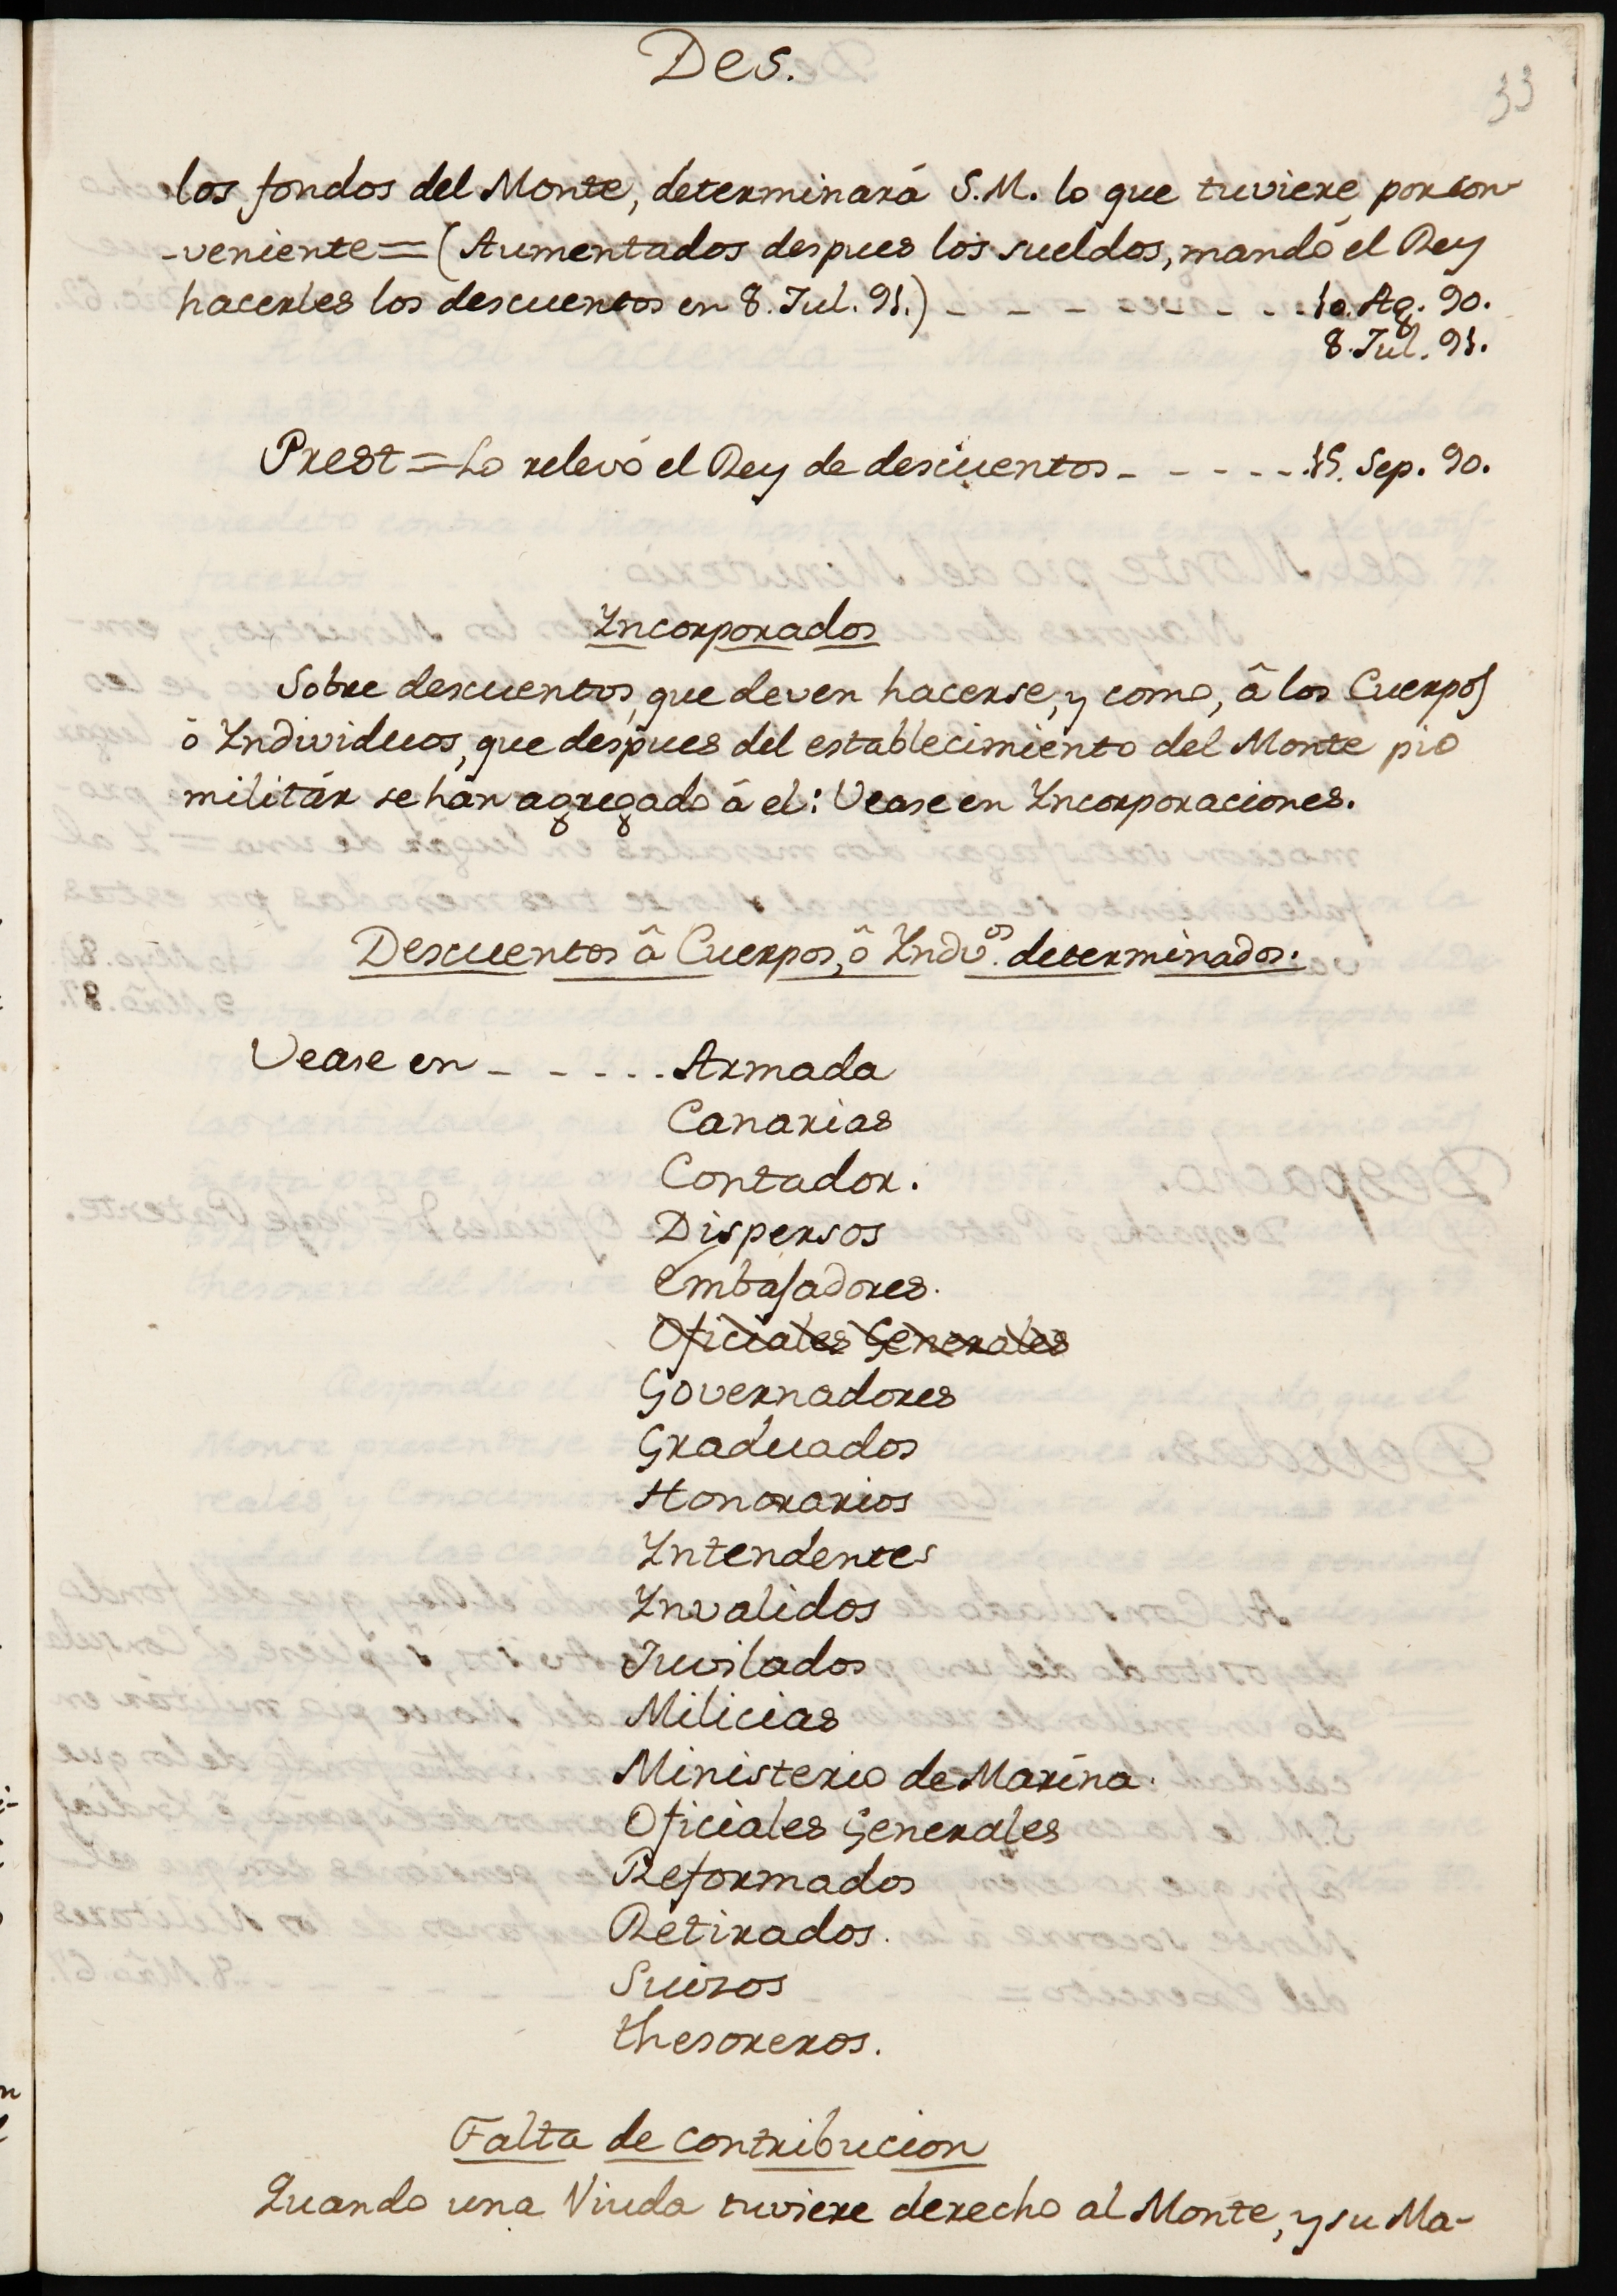 Des.
33
los fondos del Monte, determinará S.M. lo que tuviere por con-
-veniente=(Aumentados despues los sueldos, mandó el Rey
hacerles los descuentos en 8. Jul. 91.) - - - - - - - 10. Ag. 90.
8. Jul. 91.
Prest = Lo relevó el Rey de descuentos - - - - - 15. Sep. 90.
Incorporados
Sobre descuentos, que deven hacerse, y como, â los Cuerpos
ô Individuos, que despues del establecimiento del Monte pio
militár se han agregado á el: Vease en Incorporaciones.
Descuentos â Cuerpos, ô Indivos. determinados.
Vease en - - - - - Armada
Canarias
Contador.
Dispersos
Embajadores.
Oficiales Generales
Governadores
Graduados
Honorarios
Intendentes
Invalidos
Juvilados
Milicias
Ministerio de Marina.
Oficiales Generales
Reformados
Retirados.
Suizos
thesoreros.
Falta de contribucion
Quando una Viuda tuviere derecho al Monte, y su Ma-